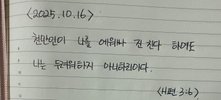 <2025.10.16>
천만인이 나를 에워싸 진 친다 하여도
나는 두려워하지 아니하리이다.
<시편 3:6>